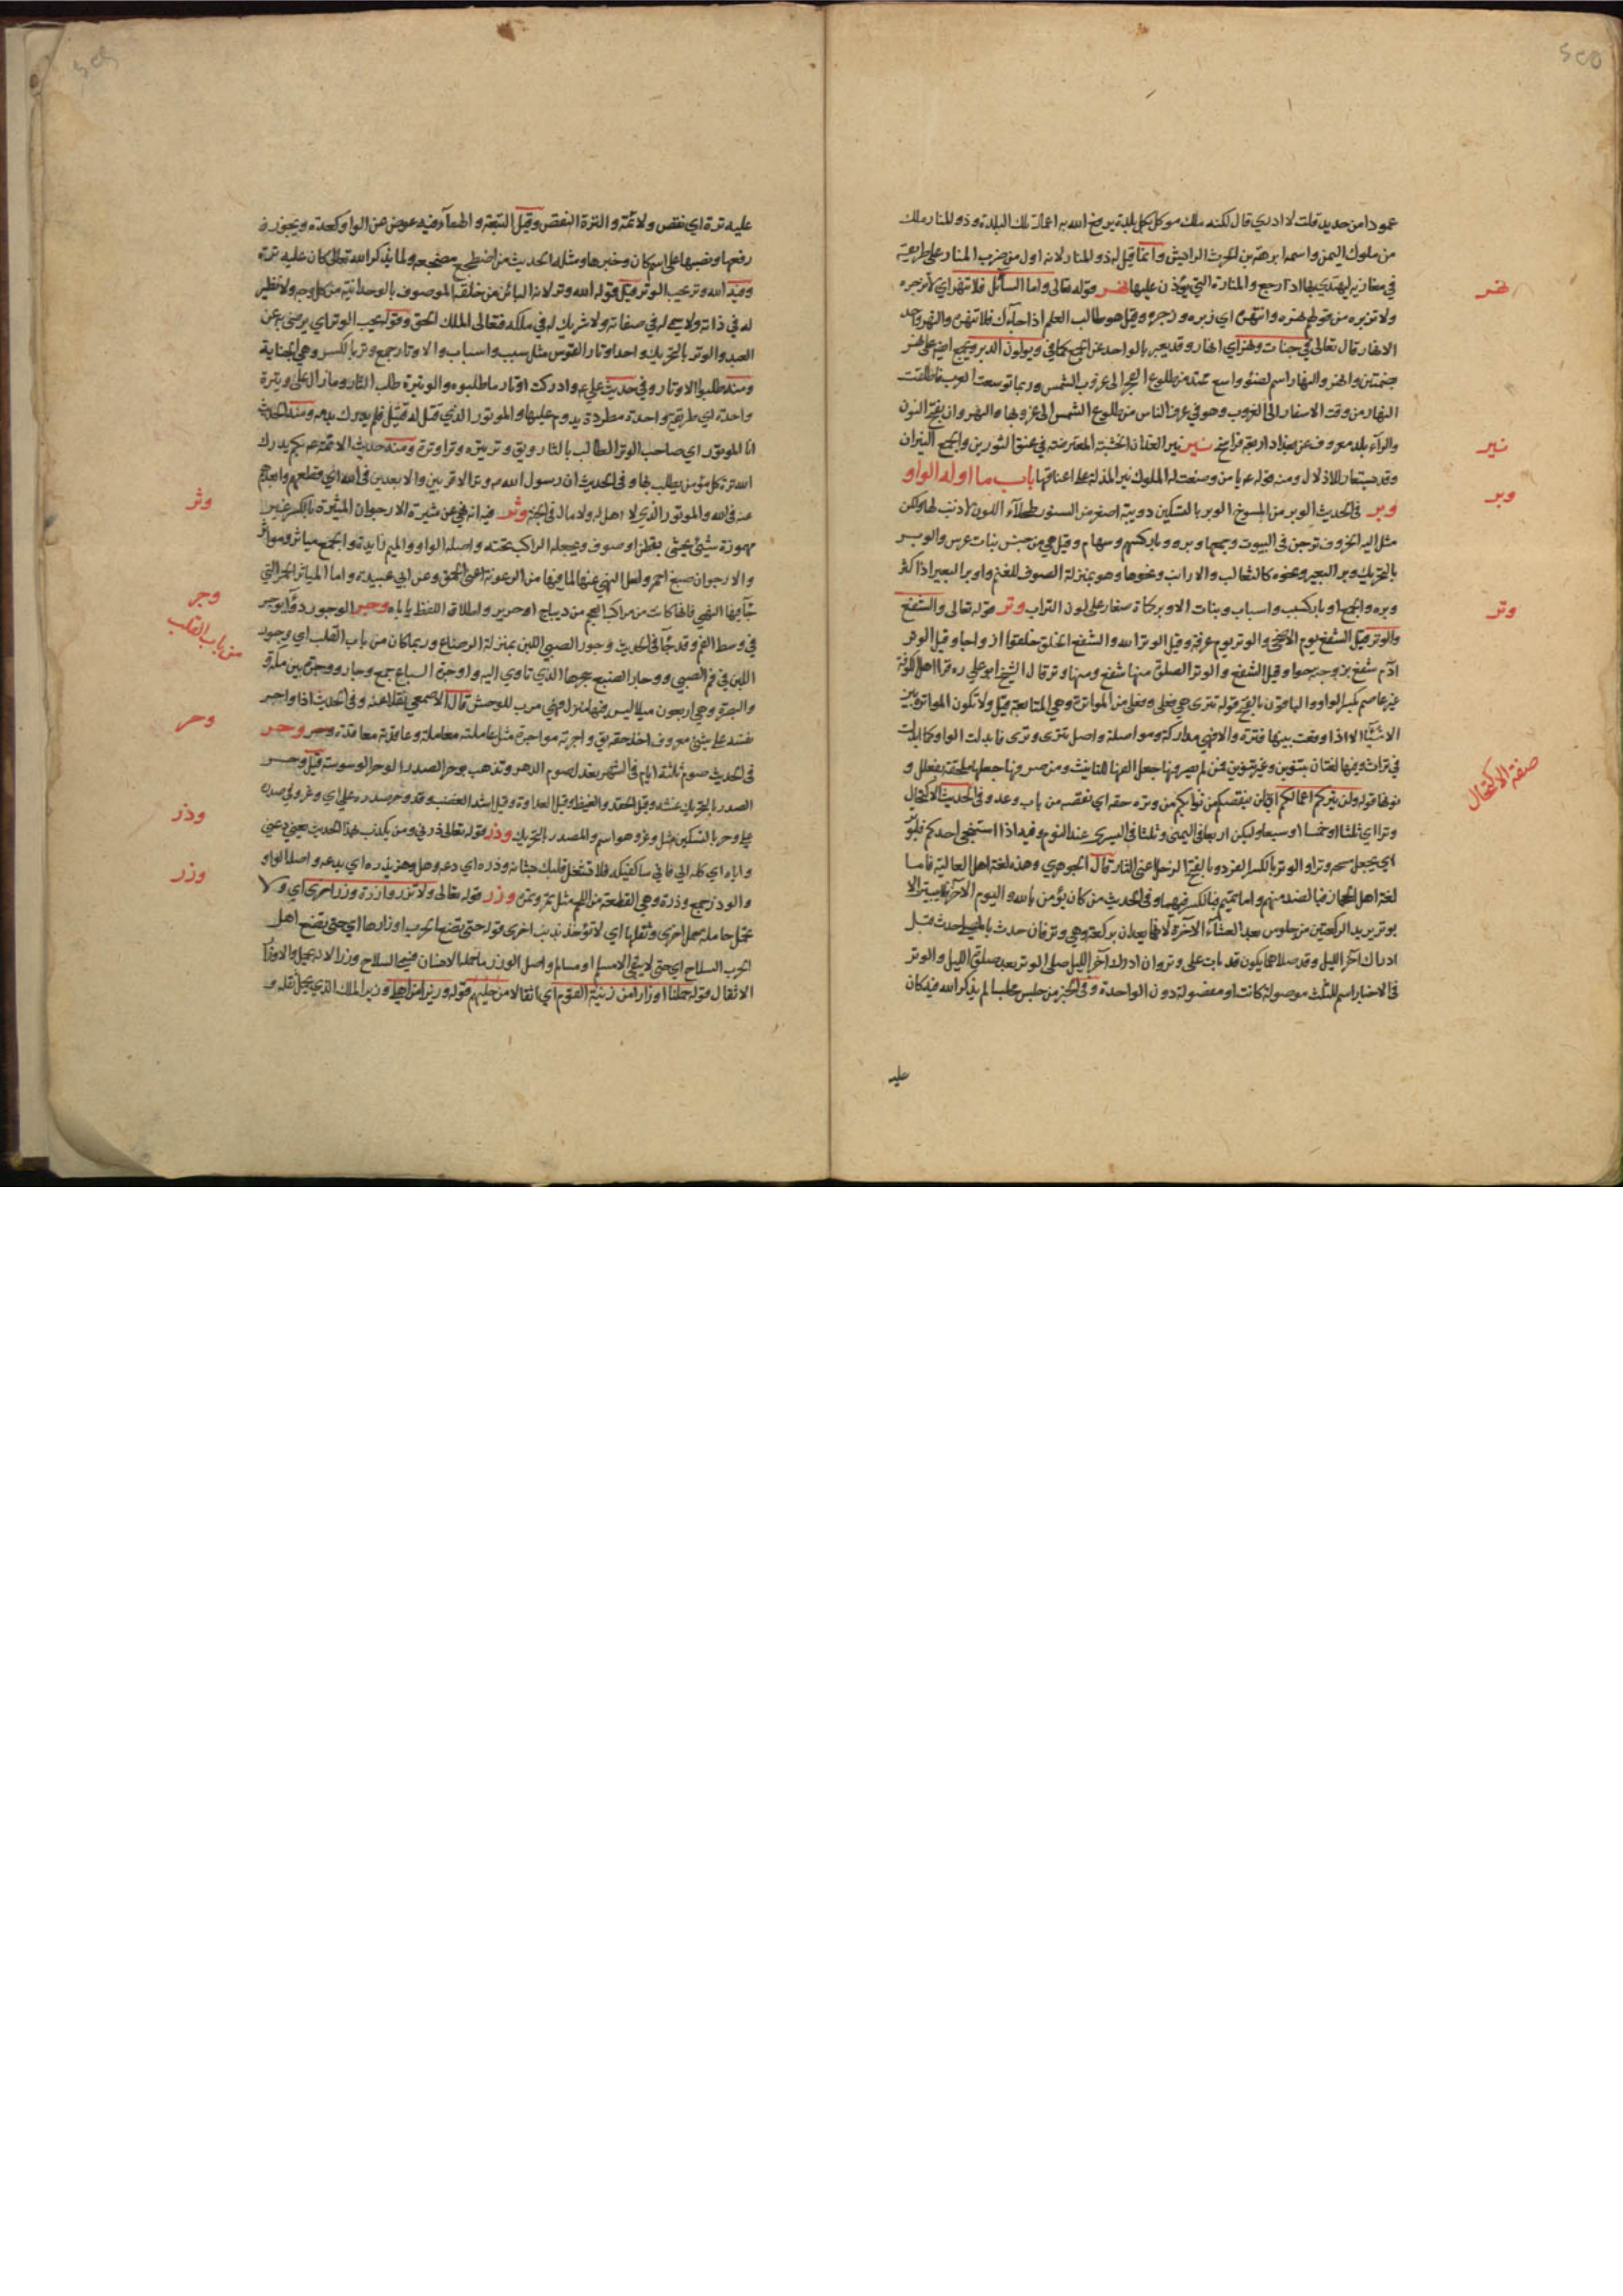 عمودا من حديد قلت لا ادري قال لكنه ملك موكل بكل بلدة يرفع الله به اعمال تلك البلدة وذو المنار ملك
من ملوك اليمن واسمه ابرهة بن الحرث الرايش وانما قيل له ذو المنار لانه اول من ضرب المنار على طريقه
في مغازيه ليهتدي بها اذا رجع والمنارة التي يؤذن عليها نهر قوله تعالى واما السائل فلا تنهر اي لا تزجره
نهر
ولا تزبره من قولهم نهره وانتهره اي زبره وزجره وقيل هو طالب العلم اذا جاءك فلا تنهره والنهر واحد
الانهار قال تعالى في جنات ونهر اي انهار وقد يعبر بالواحد عن الجمع كما في ويولون الدبر ويجمع ايضا على نهر
بضمتين وانهر والنهار اسم لضوء واسع ممتد من طلوع الفجر الى غروب الشمس وربما توسعت العرب فاطلقت
النهار من وقت الاسفار الى الغروب وهو في عرف الناس من طلوع الشمس الى غروبها والنهروان بفتح النون
والراء بلد معروف عن بغداد اربعة فراسخ نير نير الفدان الخشبة المعترضة في عنق الثورين والجمع النيران
نير
وقد يستعار للاذلال ومنه قوله ع يا من وضعت له الملوك نير المذلة على اعناقها باب ما اوله الواو
وبر في الحديث الوبر من المسوخ الوبر بالتسكين دويبة اصغر من السنور طحلاء اللون لا ذنب لها ولكن
وبر
مثل الية الخروف توجن في البيوت وجمعها وبر ووبار كسهم وسهام وقيل هي من جنس بنات عرس والوبر
بالتحريك وبر البعير ونحوه كالثعالب والارانب ونحوها وهو بمنزلة الصوف للغنم واوبر البعير اذا كثر
وبره والجمع اوبار كسبب واسباب وبنات الاوبر كماة صغار على لون التراب وتر قوله تعالى والشفع
وتر
والوتر قيل الشفع يوم الاضحى والوتر يوم عرفة وقيل الوتر الله والشفع الخلق خلقوا ازواجا وقيل الوتر
ادم شفع بزوجته حوا وقيل الشفع والوتر الصلوة منها شفع ومنها وتر قال الشيخ ابو علي ره قرأ اهل الكوفة
غير عاصم بكسر الواو والباقون بالفتح قوله تترى هي فعلى وفعلى من المواترة وهي المتابعة قيل ولا تكون المواترة بين
الاشياء الا اذا وقعت بينها فترة والا فهي مداركة ومواصلة واصل تترى وترى فابدلت الواو كما ابدلت
في تراث وفيها لغتان بتنوين وغير تنوين فمن لم يصرفها جعل الفها للتانيث ومن صرفها جعلها ملحقة بفعلل و
نونها قوله ولن يتركم اعمالكم اي لن ينقصكم من ثوابكم من وتره حقه اي نقصه من باب وعد وفي الحديث الاكتحال
صفة الاكتحال
وترا اي ثلثا او خمسا او سبعا وليكن اربعا في اليمنى وثلثا في اليسرى عند النوم وفيه اذا استنجى احدكم فليوتر
اي يجعل مسحه وترا والوتر بالكسر الفرد وبالفتح الذحل اعني الثار قال الجوهري وهذه لغة اهل العالية فاما
لغة اهل الحجاز فبالضد منهم واما تميم فبالكسر فيهما وفي الحديث من كان يؤمن بالله واليوم الآخر فلا يبيتن الا
بوتر يريد الركعتين من جلوس بعد العشاء الآخرة لانهما يعدان بركعة وهي وتر فان حدث بالمصلي حدث قبل
ادراك آخر الليل وقد صلاهما يكون قد بات على وتر وان ادرك آخر الليل صلى الوتر بعد صلوة الليل والوتر
في الاخبار اسم للثلث موصولة كانت او مفصولة دون الواحدة وفي الخبر من جلس مجلسا لم يذكر الله فيه كان
عليه
عليه ترة اي نقص ولائمة والترة النقص وقيل التبعة والهاء فيه عوض عن الواو كعدة ويجوز
رفعها ونصبها على اسم كان وخبرها ومثله الحديث من اضطجع مضجعه ولما يذكر الله تعالى كان عليه ترة
وفيه الله وتر يحب الوتر قيل قوله الله وتر لانه البائن من خلقه الموصوف بالوحدانية من كل وجه ولا نظير
له في ذاته ولا سمي له في صفاته ولا شريك له في ملكه فتعالى الملك الحق وقوله يحب الوتر اي يرضى به عن
العبد والوتر بالتحريك واحد اوتار القوس مثل سبب واسباب والاوتار جمع وتر بالكسر وهي الجناية
ومنه طلبوا الاوتار وفي حديث علي ع وادركت اوتار ما طلبوه والوتيرة طلب الثار وما زال على وتيرة
واحدة اي طريقة واحدة مطردة يدوم عليها والموتور الذي قتل له قتيل فلم يدرك بدمه ومنه الحديث
انا الموتور اي صاحب الوتر الطالب بالثار وتر يتره وترا وترة ومنه حديث الائمة ع بكم يدرك
الله ترة كل مؤمن يطلب بها وفي الحديث ان رسول الله ص وتر الاقربين والابعدين في الله اي قطعهم وابعدهم
عنه في الله والموتور الذي لا اهل له ولا مال في الجنة وثر فيه انه نهى عن ميثرة الارجوان الميثرة بالكسر غير
وثر
مهموزة شيء يحشى بقطن او صوف ويجعله الراكب تحته واصله الواو والميم زايدة والجمع مياثر ومواثر
والارجوان صبغ احمر ولعل النهي عنها لما فيها من الرعونة اعني الحمق وعن ابي عبيدة واما المياثر الحمر التي
جاء فيها النهي فانها كانت من مراكب العجم من ديباج او حرير واطلاق اللفظ ياباه وجر الوجور دواء يوجر
وجر
في وسط الفم وقد جاء في الحديث وجور الصبي اللبن بمنزلة الرضاع وربما كان من باب القلب اي وجود
من باب القلب
اللبن في فم الصبي ووجار الضبع جحرها الذي تاوي اليه واوجرة السباع جمع وجار ووجرة بين مكة
والبصرة وهي اربعون ميلا ليس فيها منزل فهي مرب للوحش قال الاصمعي نقلا عنه وفي الحديث اذا واجر
نفسه على شيء معروف اخذ حقه واجرته مواجرة مثل عاملته معاملة وعاقدته معاقدة وحر
وحر
في الحديث صوم ثلثة ايام في الشهر يعدل صوم الدهر وتذهب بوحر الصدر الوحر الوسوسة قيل وحر
الصدر بالتحريك غشه وقيل الحقد والغيظ وقيل العداوة وقيل اشد الغضب وقد وحر صدره علي اي وغر وفي صدره
علي وحر بالتسكين مثل وغر وهو اسم والمصدر بالتحريك وذر قوله تعالى ذرني ومن يكذب بهذا الحديث يعني دعني
وذر
واياه اي كله الي فاني ساكفيكه فلا تشغل قلبك بشانه وذره اي دعه وهو يذره اي يدعه واصله الواو
والوذر جمع وذرة وهي القطعة من اللحم مثل تمر وتمرة وزر قوله تعالى ولا تزر وازرة وزر اخرى اي ولا
وزر
تحمل حاملة حمل اخرى وثقلها اي لا تؤخذ بذنب اخرى قوله حتى تضع الحرب اوزارها اي حتى يضع اهل
الحرب السلاح اي حتى لا يبقى الا مسلم او مسالم واصل الوزر ما حمله الانسان فسمي السلاح وزرا لانه يحمل والاوزار
الاثقال قوله حملنا اوزارا من زينة القوم اي اثقالا من حليهم قوله وزيرا من اهلي وزير الملك الذي يحمل ثقله و